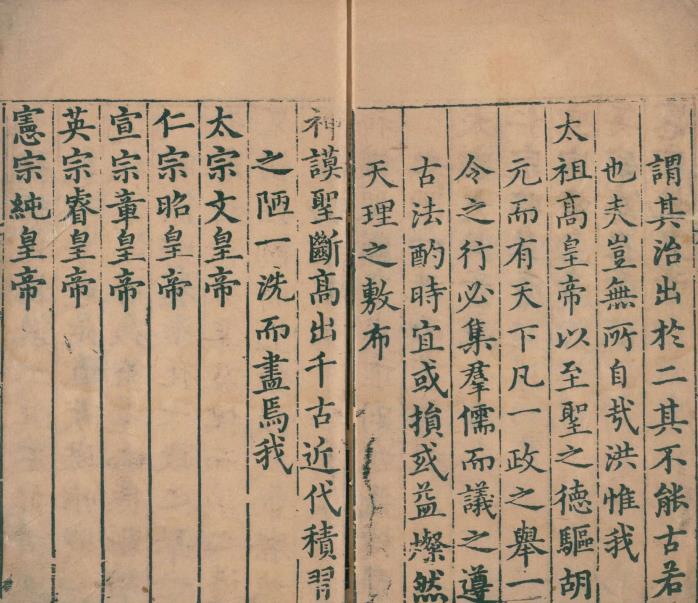 謂其治出於二其不能古若
也夫豈無所自哉洪惟我
太祖高皇帝以至聖之德驅胡
元而有天下凡一政之舉一
令之行必集羣儒而議之遵
古法酌時宜或損或益燦然
天理之敷布
神謨聖斷高出千古近代積習
之陋一洗而盡焉我
太宗文皇帝
仁宗昭皇帝
宣宗章皇帝
英宗睿皇帝
憲宗純皇帝